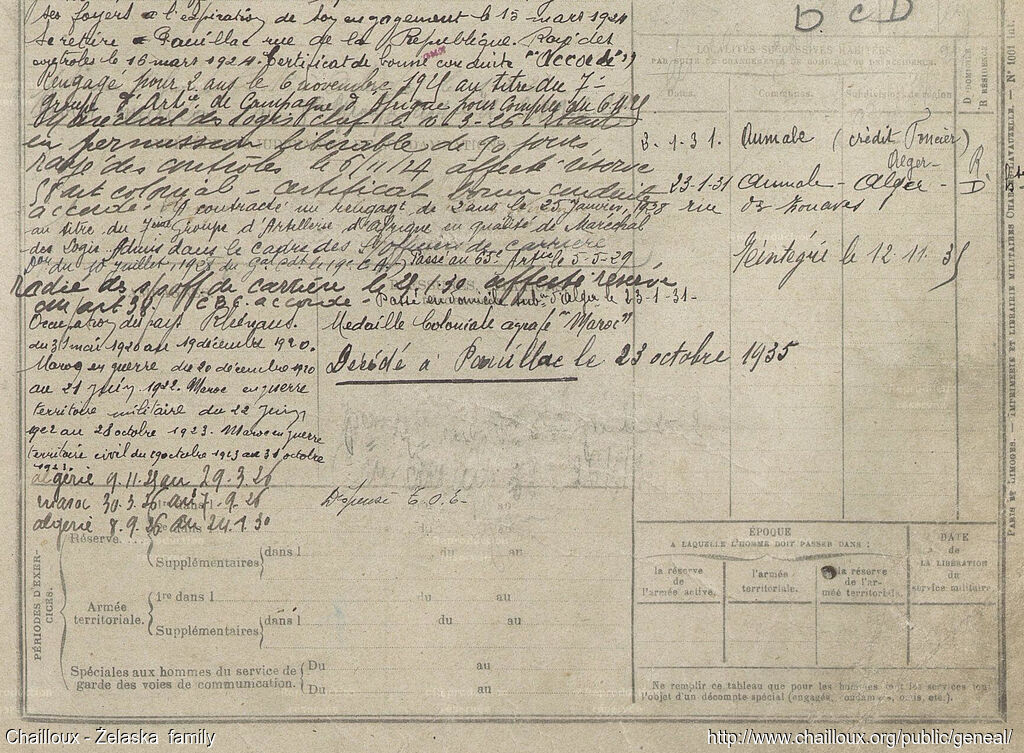 ses foyers à l'expiration de son engagement le 15 mars 1924
se retire à Pauillac rue de la République. Rayé des
controles le 16 mars 1924. Certificat de bonne conduite "Accordé"
Rengagé pour 2 ans le 6 novembre au titre du 7e
groupe d'Artie de Campagne d'Afrique pour compter du
Maréchal des logis chef le 3-26
en permission libérable de 90 jours
rayé des contrôles le affecté réserve
colonial - certificat bonne conduite
accordé - a contracté un rengagt de 2 ans le 25 Janvier 1928
au titre du 7ème Groupe d'Artillerie d'Afrique en qualité de Maréchal
des Logis. Admis dans le cadre des S/officiers de carrière
Don du 10 Juillet 1928 du Gal Cdt le 19e C.A. Passé au 65e Artie le 5-5-29
Radié des s/off de carrière le affecté réserve
C.B.C. accordé - Passé en domicile d'Alger le 23-1-31-
Occupation des pays Rhénans. Medaille Coloniale agrafe "Maroc"
du 31 mai 1920 au 19 décembre 1920.
Décédé à Pauillac le 23 octobre 1935
Maroc en guerre du 20 décembre 1920
au 21 Juin 1922. Maroc en guerre
territoire militaire du 22 Juin
1922 au 28 octobre 1923. Maroc en guerre
territoire civil du 29 octobre 1923 au 31 octobre
1923.
algérie 9.11.25 au 29.3.26
maroc 30.3.26 au 7-9-26
algérie 8.9.26 au 24.1.30
B C D
LOCALITÉS SUCCESSIVES HABITÉES
PAR SUITE DE CHANGEMENTS DE DOMICILE OU DE RÉSIDENCE.
Dates. Communes. Subdivision de région. D DOMICILE R RÉSIDENCE
3-1-31. Aumale (crédit Foncier)
Alger - R
23-1-31 Aumale - Alger - D
rue des Zouaves
Réintégré le 12.11.35
PÉRIODES D'EXERCICES.
Réserve.
1re dans l du au
Supplémentaires dans l du au
Armée territoriale.
1re dans l du au
Supplémentaires dans l du au
Spéciales aux hommes du service de
garde des voies de communication.
Du au
Du au
ÉPOQUE
A LAQUELLE L'HOMME DOIT PASSER DANS :
la réserve de l'armée active.
l'armée territoriale.
la réserve de l'armée territoriale.
DATE de LA LIBÉRATION du service militaire.
Ne remplir ce tableau que pour les hommes dont les services font
l'objet d'un décompte spécial (engagés, omis, etc.).
PARIS ET LIMOGES. — IMPRIMERIE ET LIBRAIRIE MILITAIRES CHARLES-LAVAUZELLE.
Chailloux - Żelaska family
http://www.chailloux.org/public/geneal/